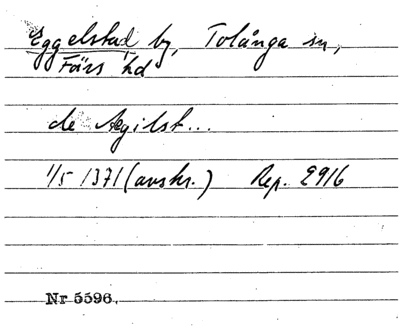 Eggelstad, by, Tolånga sn,
Färs hd
de Ægilst...
1/5 1371 (avskr.) Rep. 2916
Nr 5596.